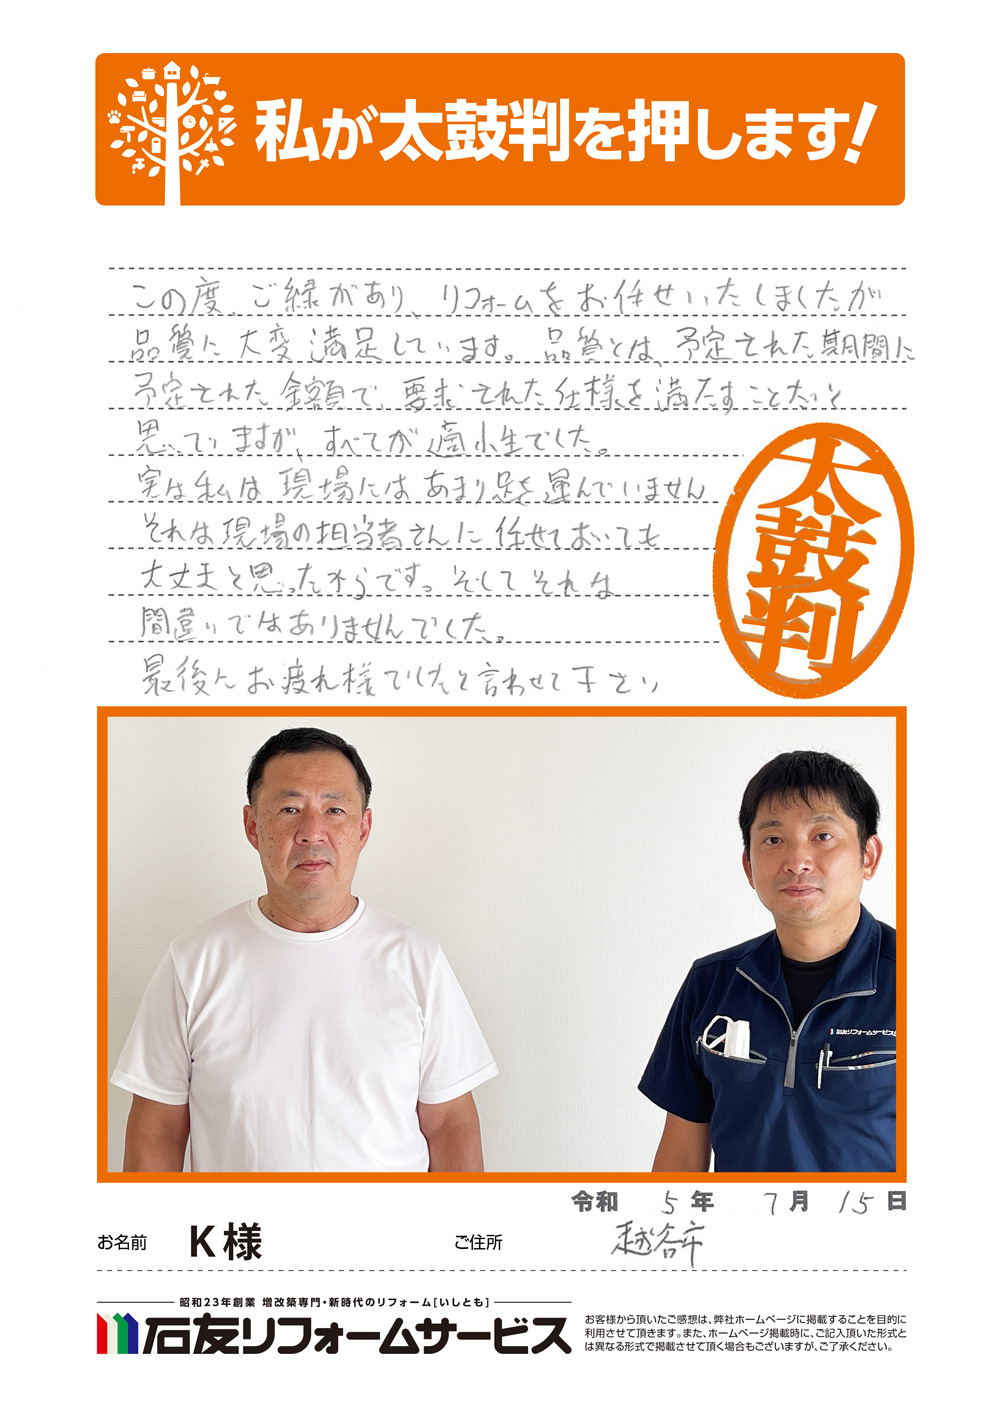 私が太鼓判を押します!
この度、ご縁があり、リフォームをお任せいたしましたが
品質に大変満足しています。品質とは、予定された期間に
予定された金額で、要求された仕様を満たすことだと
思っていますが、すべてが適小生でした。
実は私は現場にはあまり足を運んでいません
それは現場の担当者さんに任せておいても
大丈夫と思ったからです。そしてそれは
間違いではありませんでした。
最後にお疲れ様でしたと言わせて下さい
太鼓判
石友リフォームサービス
令和 5年 7月 15日
お名前 K様 ご住所 越谷市
昭和23年創業 増改築専門・新時代のリフォーム[いしとも]
石友リフォームサービス
お客様から頂いたご感想は、弊社ホームページに掲載することを目的に
利用させて頂きます。また、ホームページ掲載時に、ご記入頂いた形式と
は異なる形式で掲載させて頂く場合もございますが、ご了承ください。